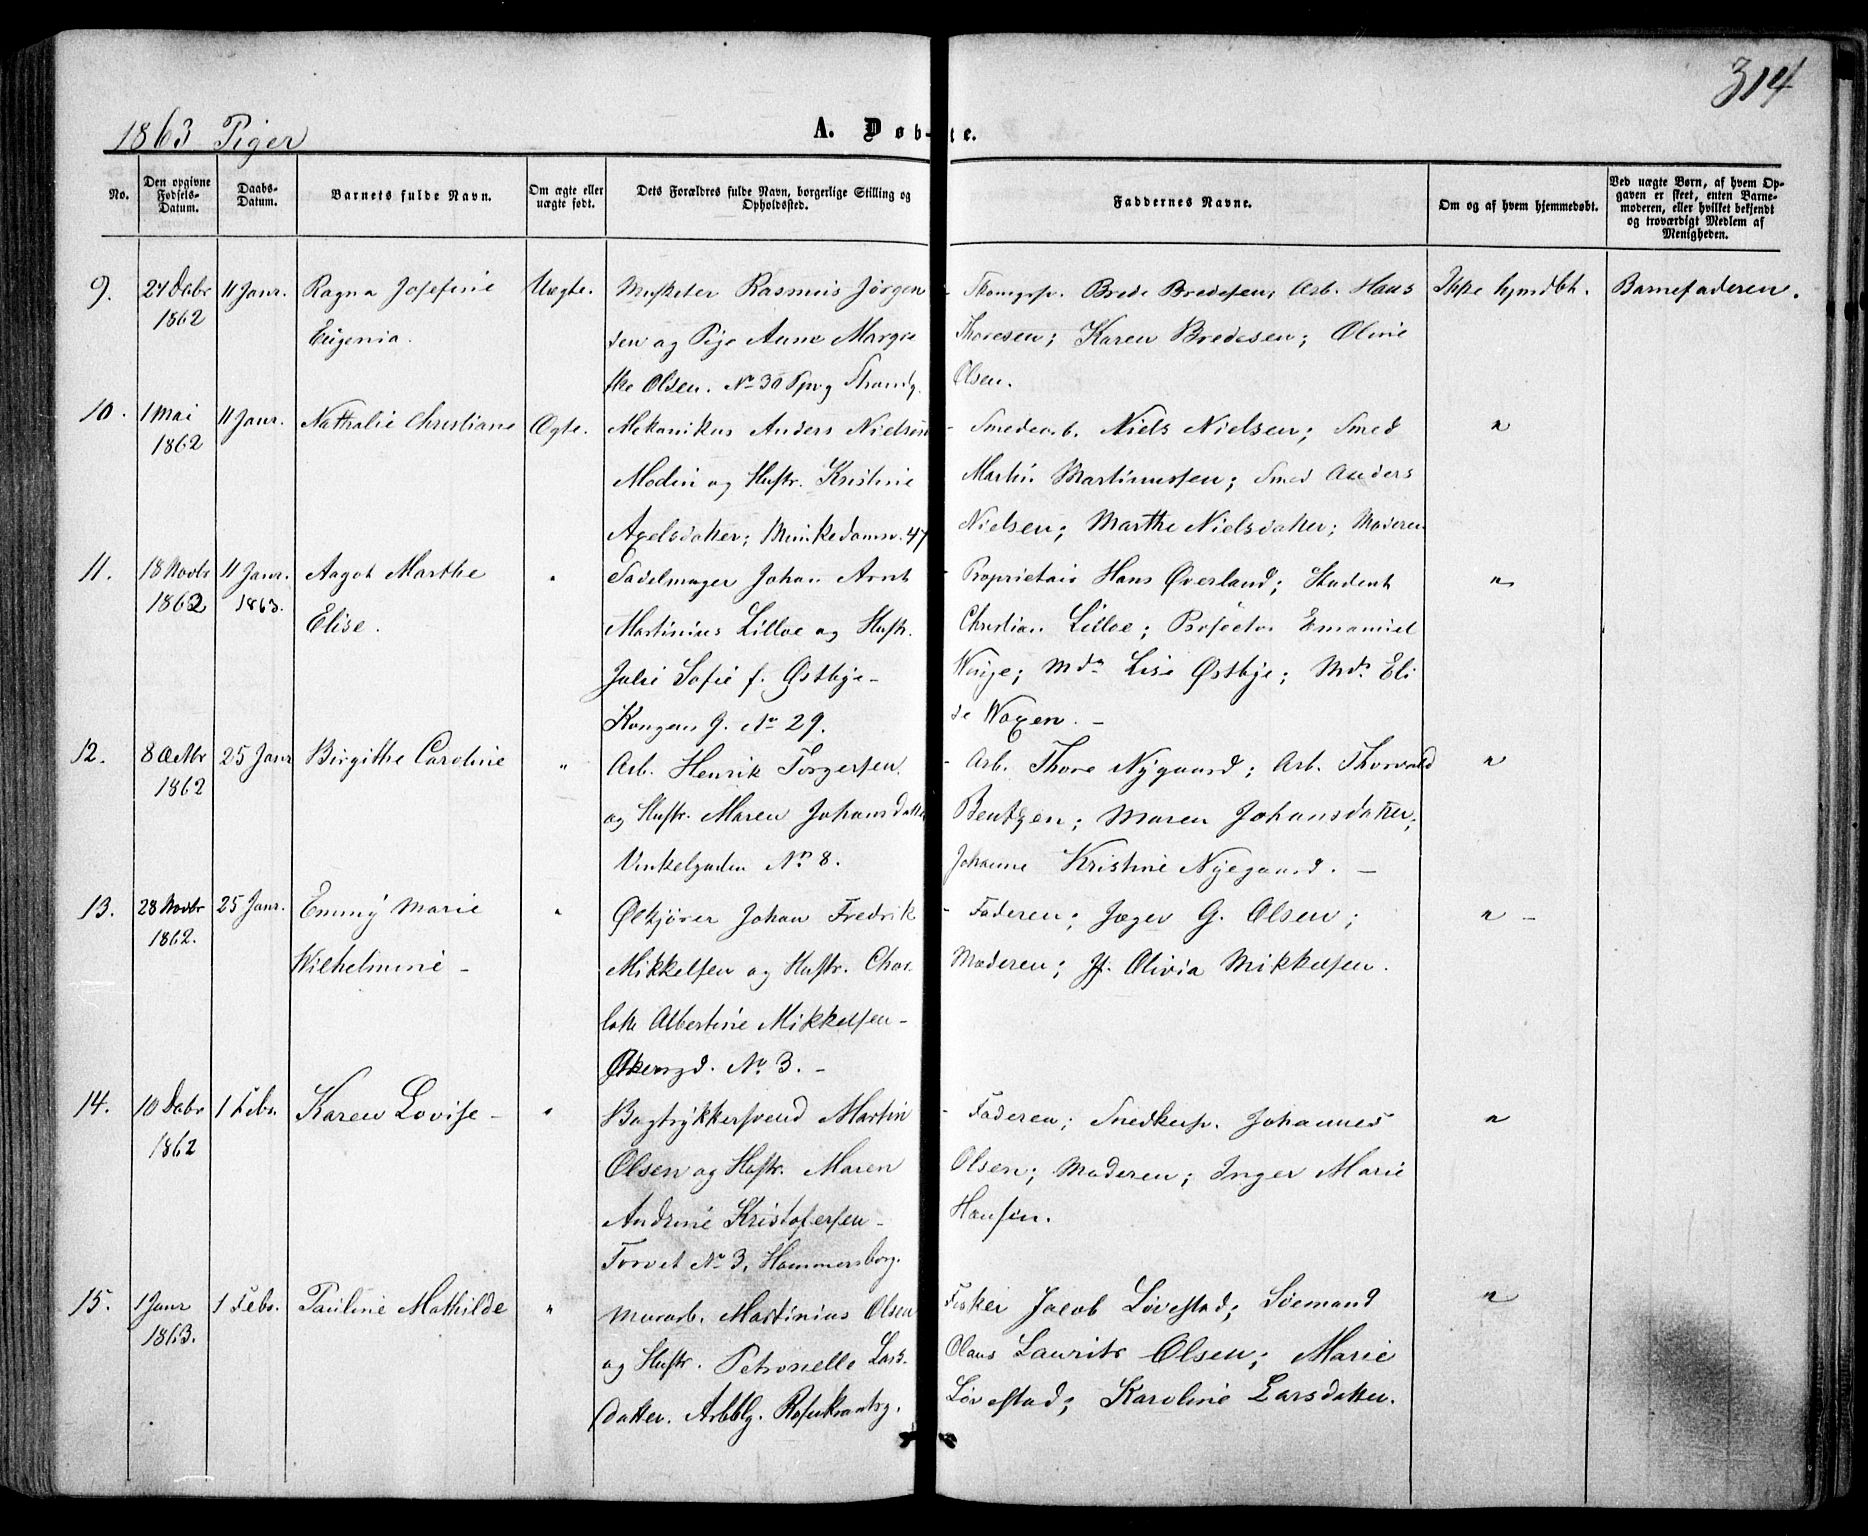 314
1863 Piger
A. Døb-te.
No.
Den opgivne Fødsels-Datum.
Daabs-Datum.
Barnets fulde Navn.
Om ægte eller uægte født.
Dets Forældres fulde Navn, borgerlige Stilling og Opholdssted.
Faddernes Navne.
Om og af hvem hjemmedøbt.
Ved uægte Børn, af hvem Opgaven er skeet, enten Barnemoderen, eller hvilket bekjendt og troværdigt Medlem af Menigheden.
9. 27 Decbr 11 Janr. Ragna Josefine Uægte. Musketer Rasmus Jørgen
1862 Eugenia.
sen og Pige Anne Margre
the Olsen. No 30 Strandg.
Brede Bredesen; Arb. Hans
Thoresen; Karen Bredesen; Oline
Olsen.
Ikke hjmdbt. Barnefaderen.
10. 1 Mai 11 Janr. Nathalie Christiane Ægte. Mekanikus Anders Nielsen
1862
Modin og Hustr. Kristine
Axelsdatter; Munkedamsv. 47
Smedearb. Niels Nielsen; Smed
Martin Martinussen; Smed Anders
Nielsen; Marthe Nielsdatter; Moderen
"
11. 18 Novbr 11 Janr. Aagot Marthe " Sadelmager Johan Arnt
1862 1863. Elise.
Martinius Lilloe og Hustr.
Julie Sofie f. Østbye -
Kongens g. No 29.
Proprietair Hans Øverland; Student
Christian Lilloe; Prosector Emanuel
Winge; Mdm Lise Østbye; Md. Eli
se Waxen. -
"
12. 8 Octbr 25 Janr Birgithe Caroline " Arb. Henrik Torgersen
1862
og Hustr. Maren Johansdatter
Vinkelgaden No 8.
Arb. Thore Nygaard; Arb. Thorvald
Bentzen; Maren Johansdatter;
Johanne Kristine Nyegaard. -
"
13. 28 Novbr 25 Janr. Emmy Marie " Ølkjører Johan Fredrik
1862. Wilhelmine -
Mikkelsen og Hustr. Char
lotte Albertine Mikkelsen -
No 3. -
Faderen; Jæger G. Olsen;
Moderen; Jf. Olivia Mikkelsen.
" -
14. 10 Decbr 1 Febr. Karen Lovise - " Bogtrykkersvend Martin
1862
Olsen og Hustr. Maren
Andrine Kristofersen -
Torvet No 3, Hammersborg.
Faderen; Snedkersv. Johannes
Olsen; Moderen; Inger Marie
Hansen.
"
15. 1 Janr 1 Febr. Pauline Mathilde " Murarb. Martinius Olsen
1863.
og Hustr. Petronelle Lars-
datter. Arbblg. Rosenkrantzg.
Fisker Jacob Løvestad; Sømand
Olaus Laurits Olsen; Marie
Løvestad; Karoline Larsdatter.
"